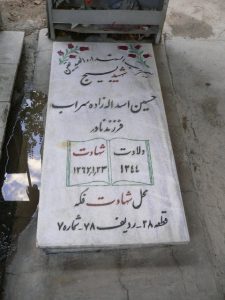 شهید بسیج
حسین اسداله زاده سراب
فرزند نادر
ولادت شهادت
۱۳۴۴ ۱۳۶۲/۱/۲۳
محل شهادت فکه
قطعه ۲۸-ردیف ۷۸-شماره ۷